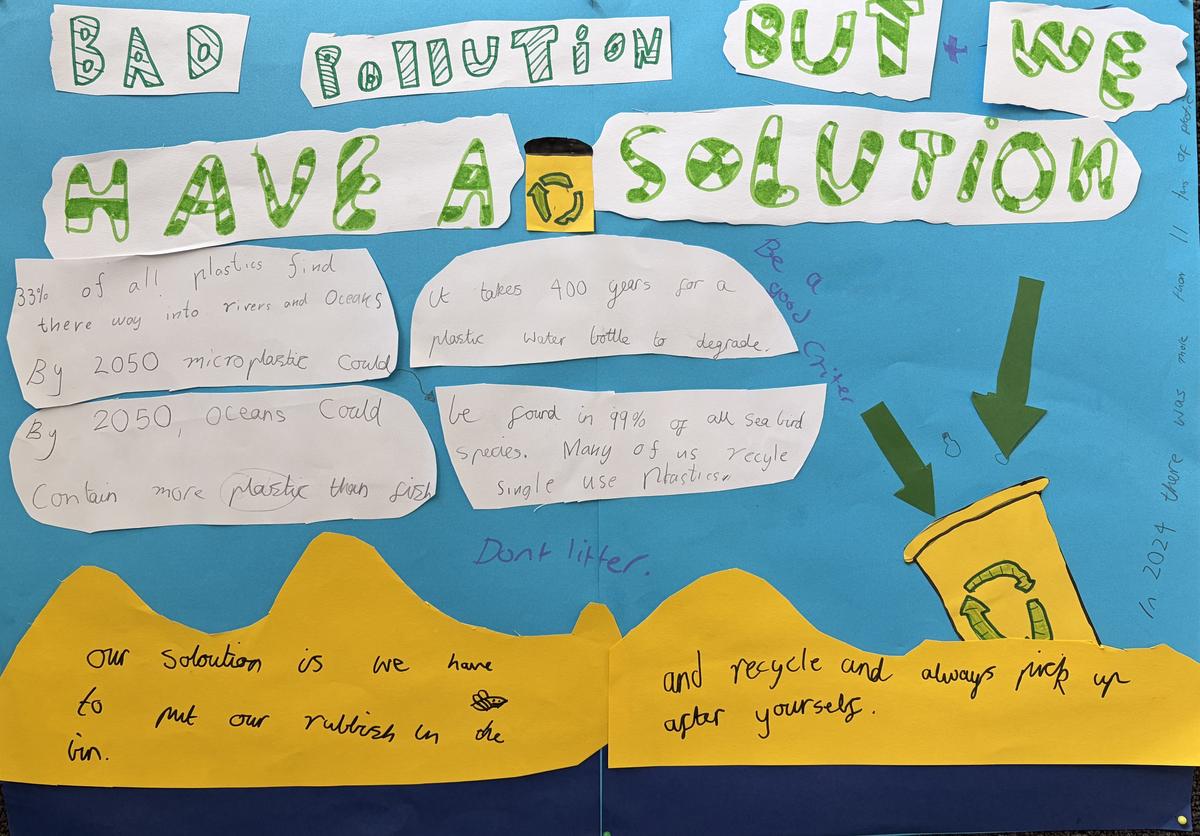 BAD POLLUTION BUT WE
HAVE A SOLUTION
33% of all plastics find
there way into rivers and Oceans
By 2050 microplastic Could
It takes 400 years for a
plastic water bottle to degrade.
By 2050, oceans Could
Contain more plastic than fish
be found in 99% of all sea bird
species. Many of us recyle
single use Plastics.
Be a
good Criter
Dont litter.
In 2024 there was more than 11 tns of plastic
our soloution is we have
to put our rubbish in the
bin.
and recycle and always pick up
after yourself.